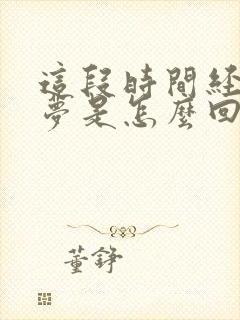 這段時間経
夢是怎麼回
董錚